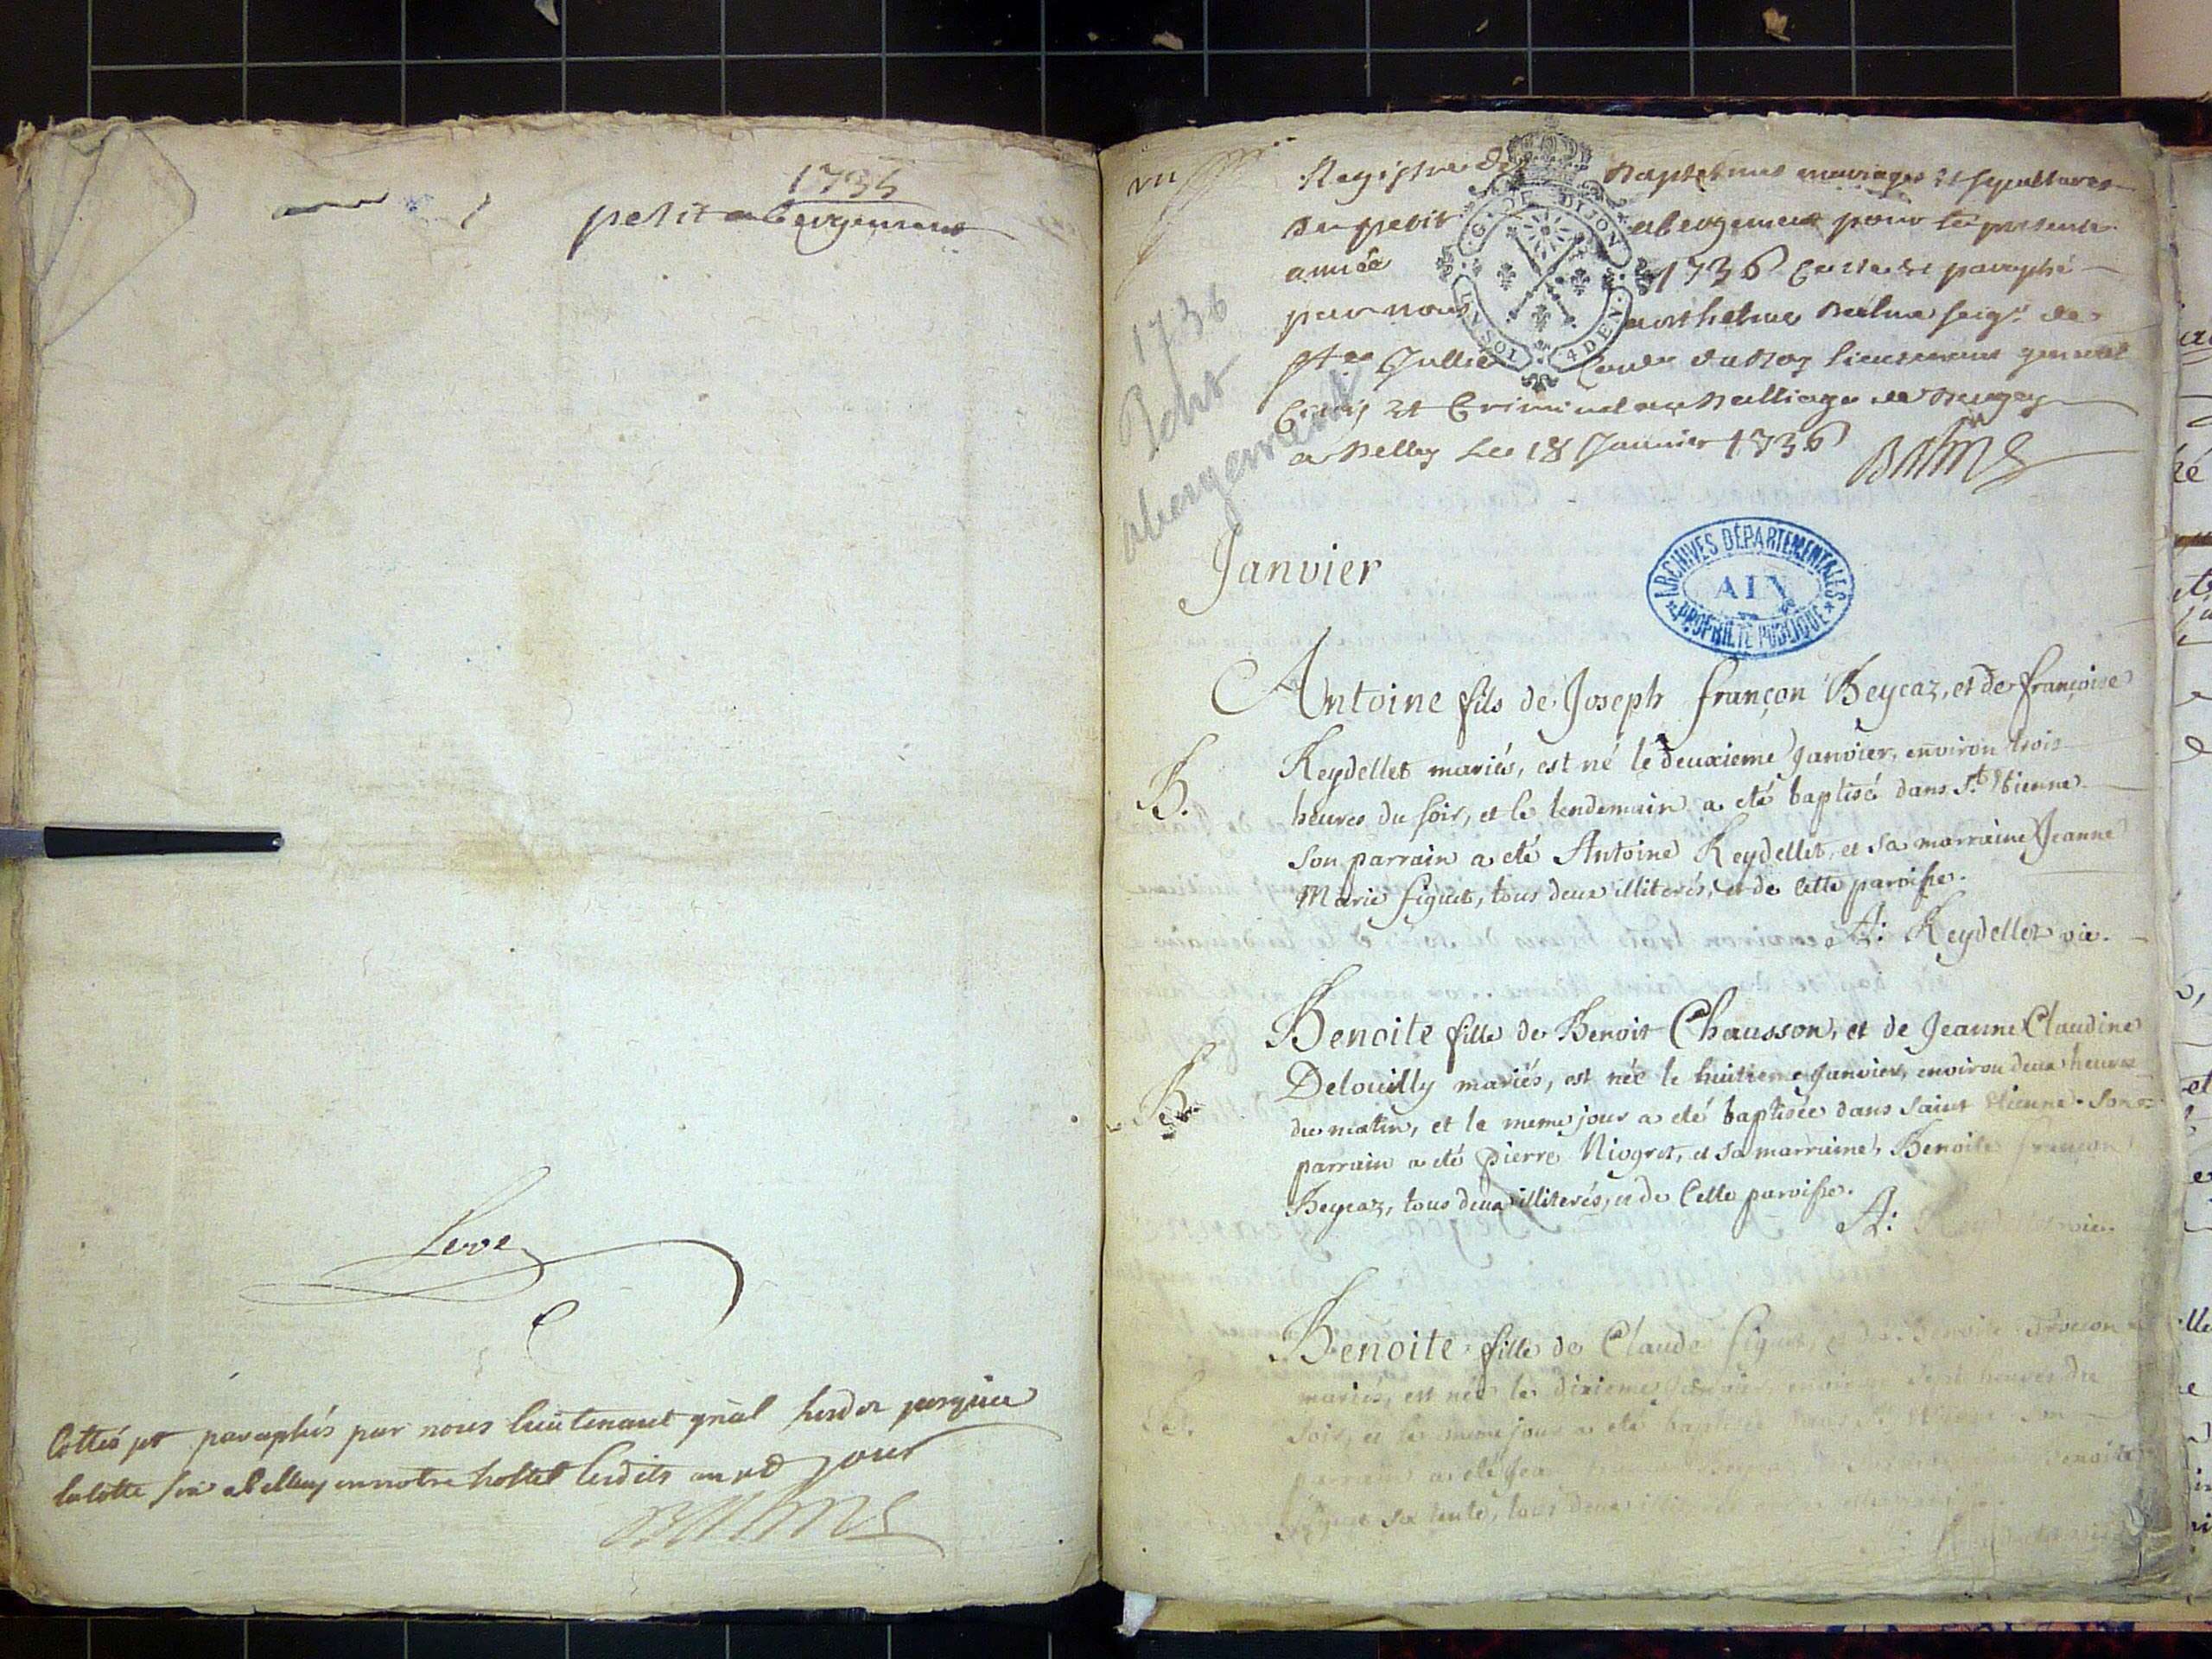 1735
petit abergement
Leve
Cottés et paraphés par nous lieutenant gnal susdit jusques
la cotte six a belley en notre hostel lesdits an et jour
Balme
vu
1736
Petit
abergement
Registre des Baptesmes mariages et sepultures
du petit abergement pour la presente
année 1736 Cotte et paraphé
par nous anthelme Balme seigr de
Ste Jullie Coner du Roy lieutenant general
Civil et Criminel au Balliage de Bugey
a Belley Le 18 Janvier 1736
Balme
G. DE DIJON
1 SOL
4 DEN.
Janvier
ARCHIVES DÉPARTEMENTALES
AIN
PROPRIÉTÉ PUBLIQUE
Antoine fils de Joseph françon Beycaz, et de françoise
B.
Reydellet mariés, est né le deuxieme Janvier, environ trois
heures du soir, et le lendemain a eté baptisé dans St. Etienne
Son parrain a eté Antoine Reydellet, et sa marraine Jeanne
Marie figuet, tous deux illiterés, et de cette paroisse.
A: Reydellet vic.
Benoite fille de Benoit Chausson, et de Jeanne Claudine
B.
Delouilly mariés, est née le huitieme Janvier, environ deux heures
du matin, et le meme jour a eté baptisée dans Saint Etienne. Son
parrain a eté Pierre Niogret, et sa marraine Benoite françon
Beycaz, tous deux illiterés, et de Cette paroisse.
A: Rey vic.
Benoite fille de Claude figuet, et de Benoite
mariés, est née le dixieme Janvier environ sept heures du
B.
Soir, et le meme jour a eté baptisée dans St Etienne Son
parrain a eté Jean Benoite
figuet sa tante, tous deux